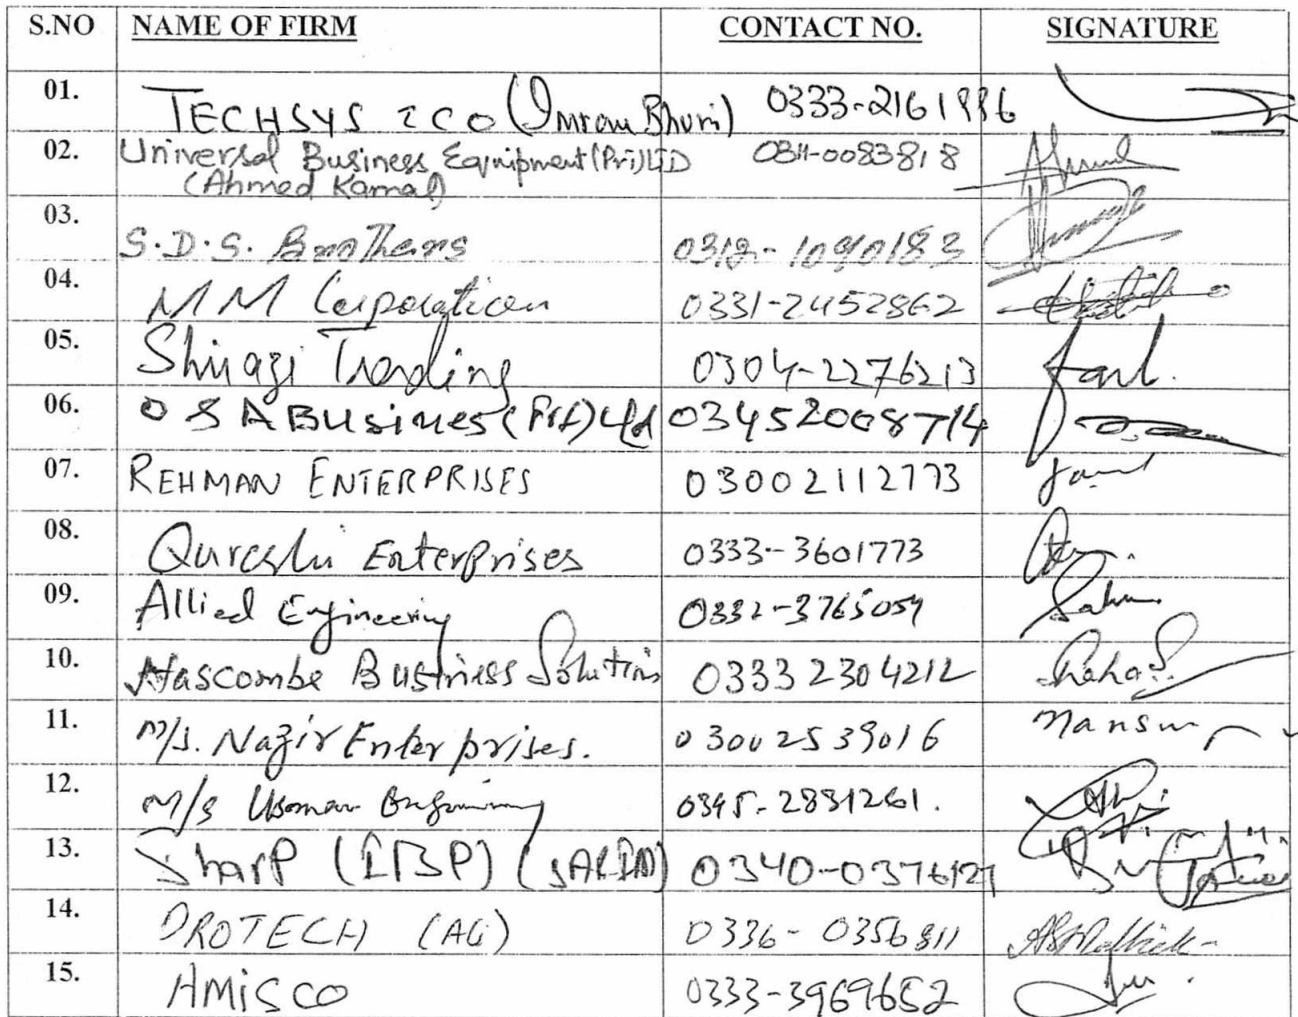 S.NO NAME OF FIRM CONTACT NO. SIGNATURE
01. TECHSYS & CO (Imran Bhuri) 0333-2161996
02. Universal Business Equipment (Pri) LTD 0311-0083818
(Ahmed Kamal)
03. S.D.S. Brothers 0312-1090183
04. MM Corporation 0331-2452862
05. Shirazi Trading 0304-2276213
06. O S A BUSINES (Pvt) Ltd 03452008714
07. REHMAN ENTERPRISES 03002112773
08. Qureshi Enterprises 0333-3601773
09. Allied Engineering 0332-3765059
10. Hascombe Business Solutions 03332304212
11. M/s. Nazir Enterprises. 03002539016 Mansur
12. M/s Usman Engineering 0345-2831261.
13. Sharp (IBP) 0340-0376127
14. DROTECH (AG) 0336-0356811
15. AMISCO 0333-3969652